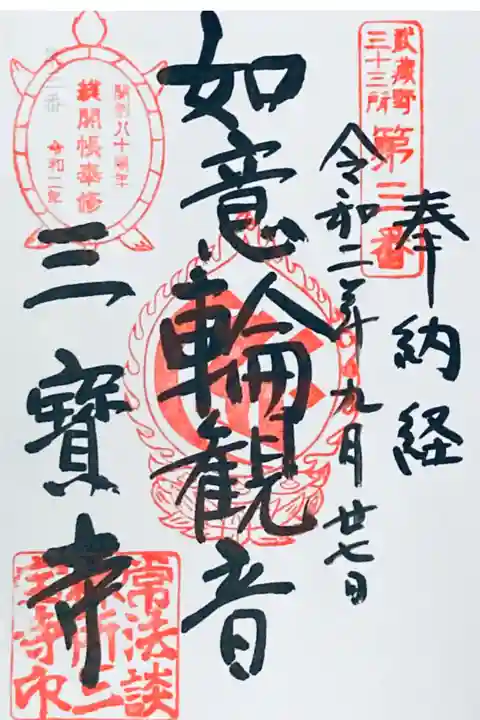 武蔵野
三十三所
第三番
奉納経
令和二年九月廿七日
如意輪観音
三寶寺
開創八十周年
開帳奉修
令和二年
常法談
林所三
宝寺印